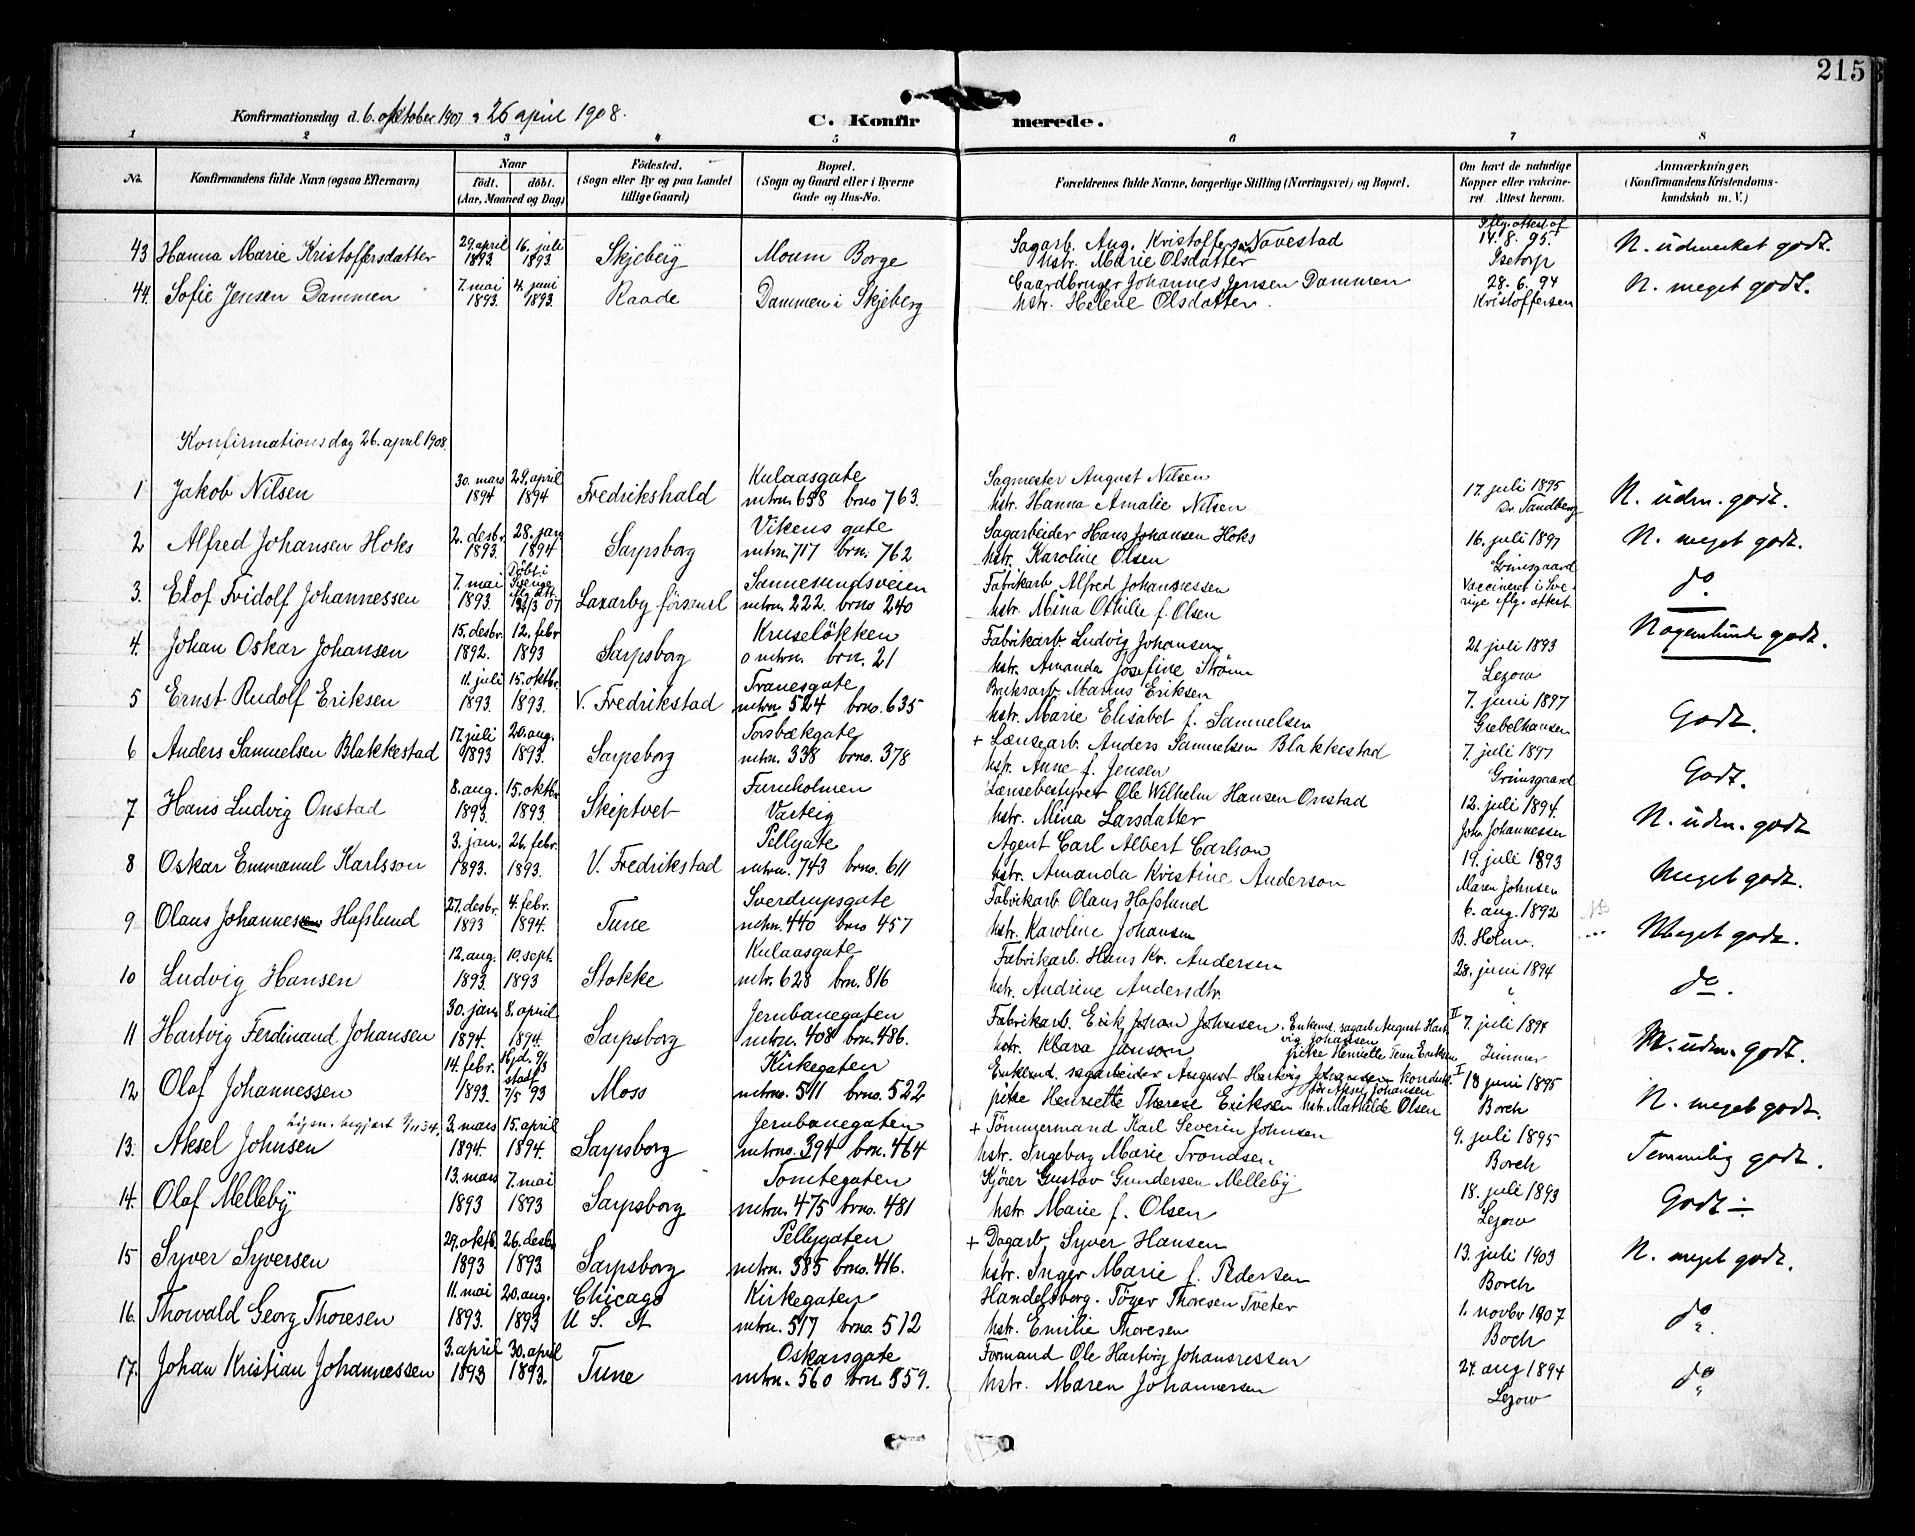 215
Konfirmationsdag d. 6. oktober 1907 26 april 1908.
C. Konfirmerede.
1 2 3 4 5 6 7 8
No.
Konfirmandens fulde Navn (ogsaa Efternavn)
Naar
født. døbt.
(Aar, Maaned og Dag)
Fødested.
(Sogn eller By og paa Landet
tillige Gaard)
Bopæl.
(Sogn og Gaard eller i Byerne
Gade og Hus-No.
Forældrenes fulde Navne, borgerlige Stilling (Næringsvei) og Bopæl.
Om havt de naturlige
Kopper eller vakcine-
ret. Attest herom.
Anmærkninger,
(Konfirmandens Kristendoms-
kundskab m. V.)
43 Hanna Marie Kristoffersdatter
29. april 1893
16. juli 1893
Skjeberg
Moum Borge
Sagarb. Aug. Kristoffersen Navestad
hstr. Marie Olsdatter
Iflg. attest af
14. 8. 95.
Isetorp
N. udmerket godt.
44. Sofie Jensen Dammen
7. mai 1893.
4. juni 1893.
Raade
Dammen i Skjeberg
Gaardbruger Johannes Jensen Dammen
hstr. Helene Olsdatter.
28. 6. 94
Kristoffersen
N. meget godt.
Konfirmationsdag 26. april 1908.
1 Jakob Nilsen
30. mars 1894
29. april 1894
Fredrikshald
Kulaasgate
mtrn. 658 brno 763.
Sagmester August Nilsen
hstr. Hanna Amalie Nilsen
17. juli 1895
Dr. Sandberg
N. üdm. godt.
2 Alfred Johansen Hoks
2. desbr. 1893.
28. jan 1894
Sarpsborg
Vikens gate
mtrn. 717 brn. 762
Sagarbeider Hans Johansen Hoks
hstr. Karoline Olsen
16. juli 1897
Grimsgaard
N. meget godt.
3. Elof Fridolf Johannessen
7. mai 1893.
Döbt i
Sverige
Laxarby församl
Sannesundsveien
mtrn. 222. brno 240
Fabrikarb. Alfred Johannessen
hstr. Mina Ottilie f. Olsen
Vaccineret i Sve-
rige iflg. attest.
do
4. Johan Oskar Johansen
15. desbr. 1892.
12. febr 1893
Sarpsborg
Kruseløkken
o mtrn. brn. 21
Fabrikarb. Ludvig Johansen
hstr. Amanda Josefine Strøm
21. juli 1893
Lezow
Nogenlunde godt.
5 Ernst Rudolf Eriksen
11. juli 1893.
15. oktbr. 1893.
V. Fredrikstad
Tranesgate
mtrn. 524 brno. 635
Bruksarb. Marius Eriksen
hstr. Marie Elisabet f. Samuelsen
7. juni 1897
Giebelhausen
Godt.
6 Anders Samuelsen Blakkestad
17. juli 1893
20. aug. 1893.
Sarpsborg
Torsbækgate
mtrn. 338 brno. 378
+ Lænsearb. Anders Samuelsen Blakkestad
hstr. Anne f. Jensen
7. juli 1897
Grimsgaard
Godt.
7 Hans Ludvig Onstad
8. aug. 1893.
15. oktbr 1893.
Skiptvet
Furuholmen
Varteig
Lænsebestyrer Ole Wilhelm Hansen Onstad
hstr. Mina Larsdatter
12. juli 1894.
Johs Johannessen
N. üdm. godt
8 Oskar Emmanuel Karlsson
3. jan. 1893.
26. febr. 1893.
V. Fredrikstad
Pellygate
mtrn. 743 brno. 611
Agent Carl Albert Carlson
hstr. Amanda Kristine Anderson
19. juli 1893
Maren Johnsen
Meget godt.
9 Olaus Johannesen Hafslund
27. desbr. 1893
4. febr. 1894.
Tune
Sverdrupsgate
mtrn. 440 brno 457
Fabrikarb. Olaus Hafslund
hstr. Karoline Johansen
6. aug. 1892
B. Holm.
NB
Meget godt.
10 Ludvig Hansen
12. aug. 1893.
10. sept. 1893
Stokke
Kulaasgate
mtr. 628 brn. 816
Fabrikarb. Hans Kr. Andersen
hstr. Andrine Andersdtr.
28. juni 1894
"
do.
11 Hartvig Ferdinand Johansen
30. jan 1894.
8. april 1894.
Sarpsborg
Jernbanegaten
mtrn. 408 brn. 486.
Fabrikarb. Erik Johan Johnsen. Enkemd. sagarb. August Hart-
vig Johansen
hstr. Klara Jonson
II 7. juli 1894
Zimmer
N. üdm. godt.
12. Olaf Johannessen
14. febr. 1893.
Hjd. 9/3
stadf. 7/5 93
Moss
Kirkegaten
mtrn. 511 brno. 522
Enkemd. sagarbeider August Hartvig Johansen
pike Henriette Therese Eriksen hstr. Mathilde Olsen
I 18 juni 1895
Borch
N. meget godt.
13. Aksel Johnsen
3. mars 1894.
15. april 1894.
Sarpsborg
Jernbanegaten
mtrno. 394 brn. 464
+ Tömmermand Karl Severin Johnsen
hstr. Ingeborg Marie Trondsen
9. juli 1895
Borch
Temmelig godt.
14. Olaf Melleby
13. mars 1893
7. mai 1893
Sarpsborg
Tomtegaten
mtrn. 475 brno. 481
Kjører Gustav Gundersen Melleby
hstr. Marie f. Olsen
18. juli 1893
Lezow
Godt ÷
15 Syver Syversen
29. oktb. 1893
26. desbr 1893
Sarpsborg
Pellygaten
mtrn. 385 brno. 416.
+ Dagarb. Syver Hansen
hstr. Inger Marie f. Pedersen
13. juli 1903
Borch
N. meget godt.
16. Thorvald Georg Thoresen
11. mai 1893.
20. aug. 1893
Chicago
U. S. A
Kirkegaten
mtrn. 517 brno. 512
Handelsborg. Töger Thoresen Tveter
hstr. Emilie Thoresen
1. novbr 1907
Boch
do.
17. Johan Kristian Johannessen
3. april 1893
30. april 1893.
Tune
Oskarsgate
mtrn. 560 brn. 559.
Formand Ole Hartvig Johannessen
hstr. Maren Johannessen
24. aug 1894
Lezow
do